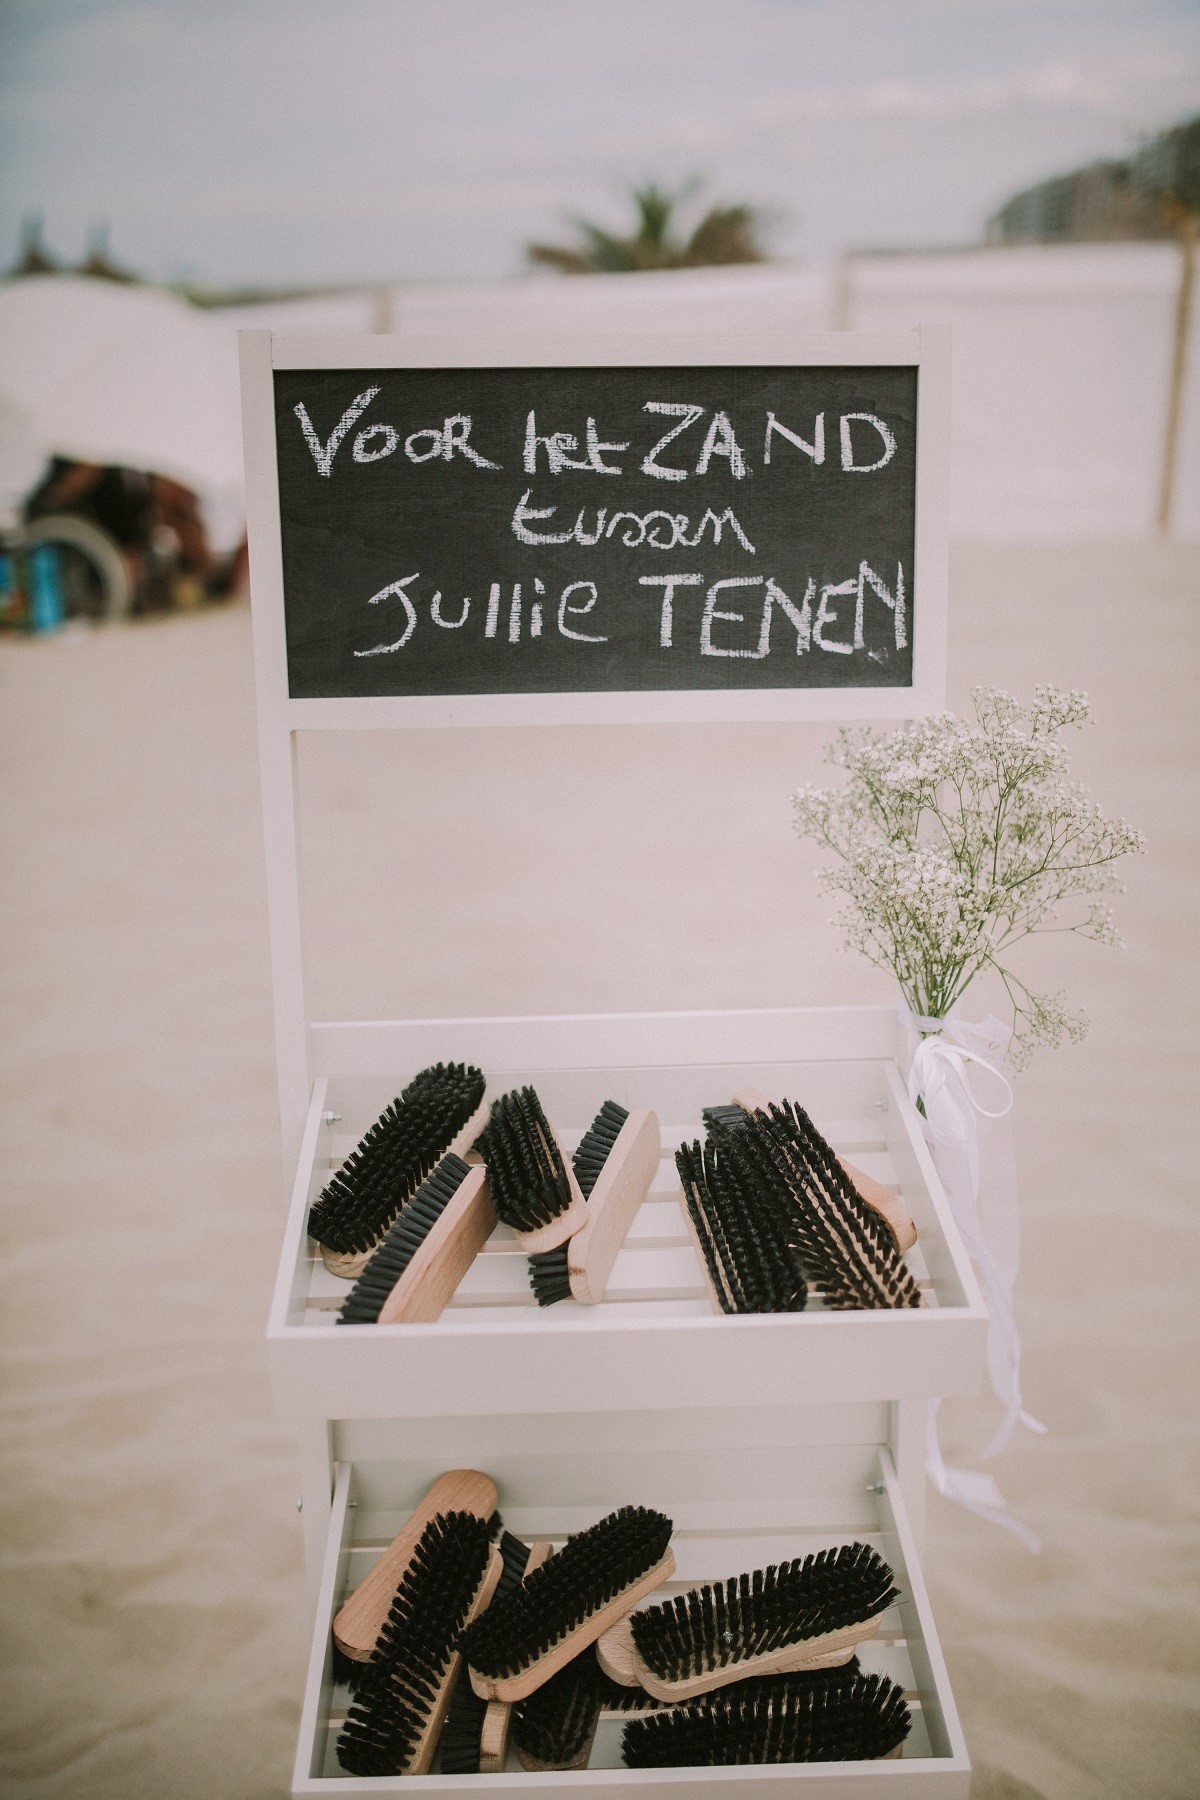 Voor het ZAND
tussen
Jullie TENEN